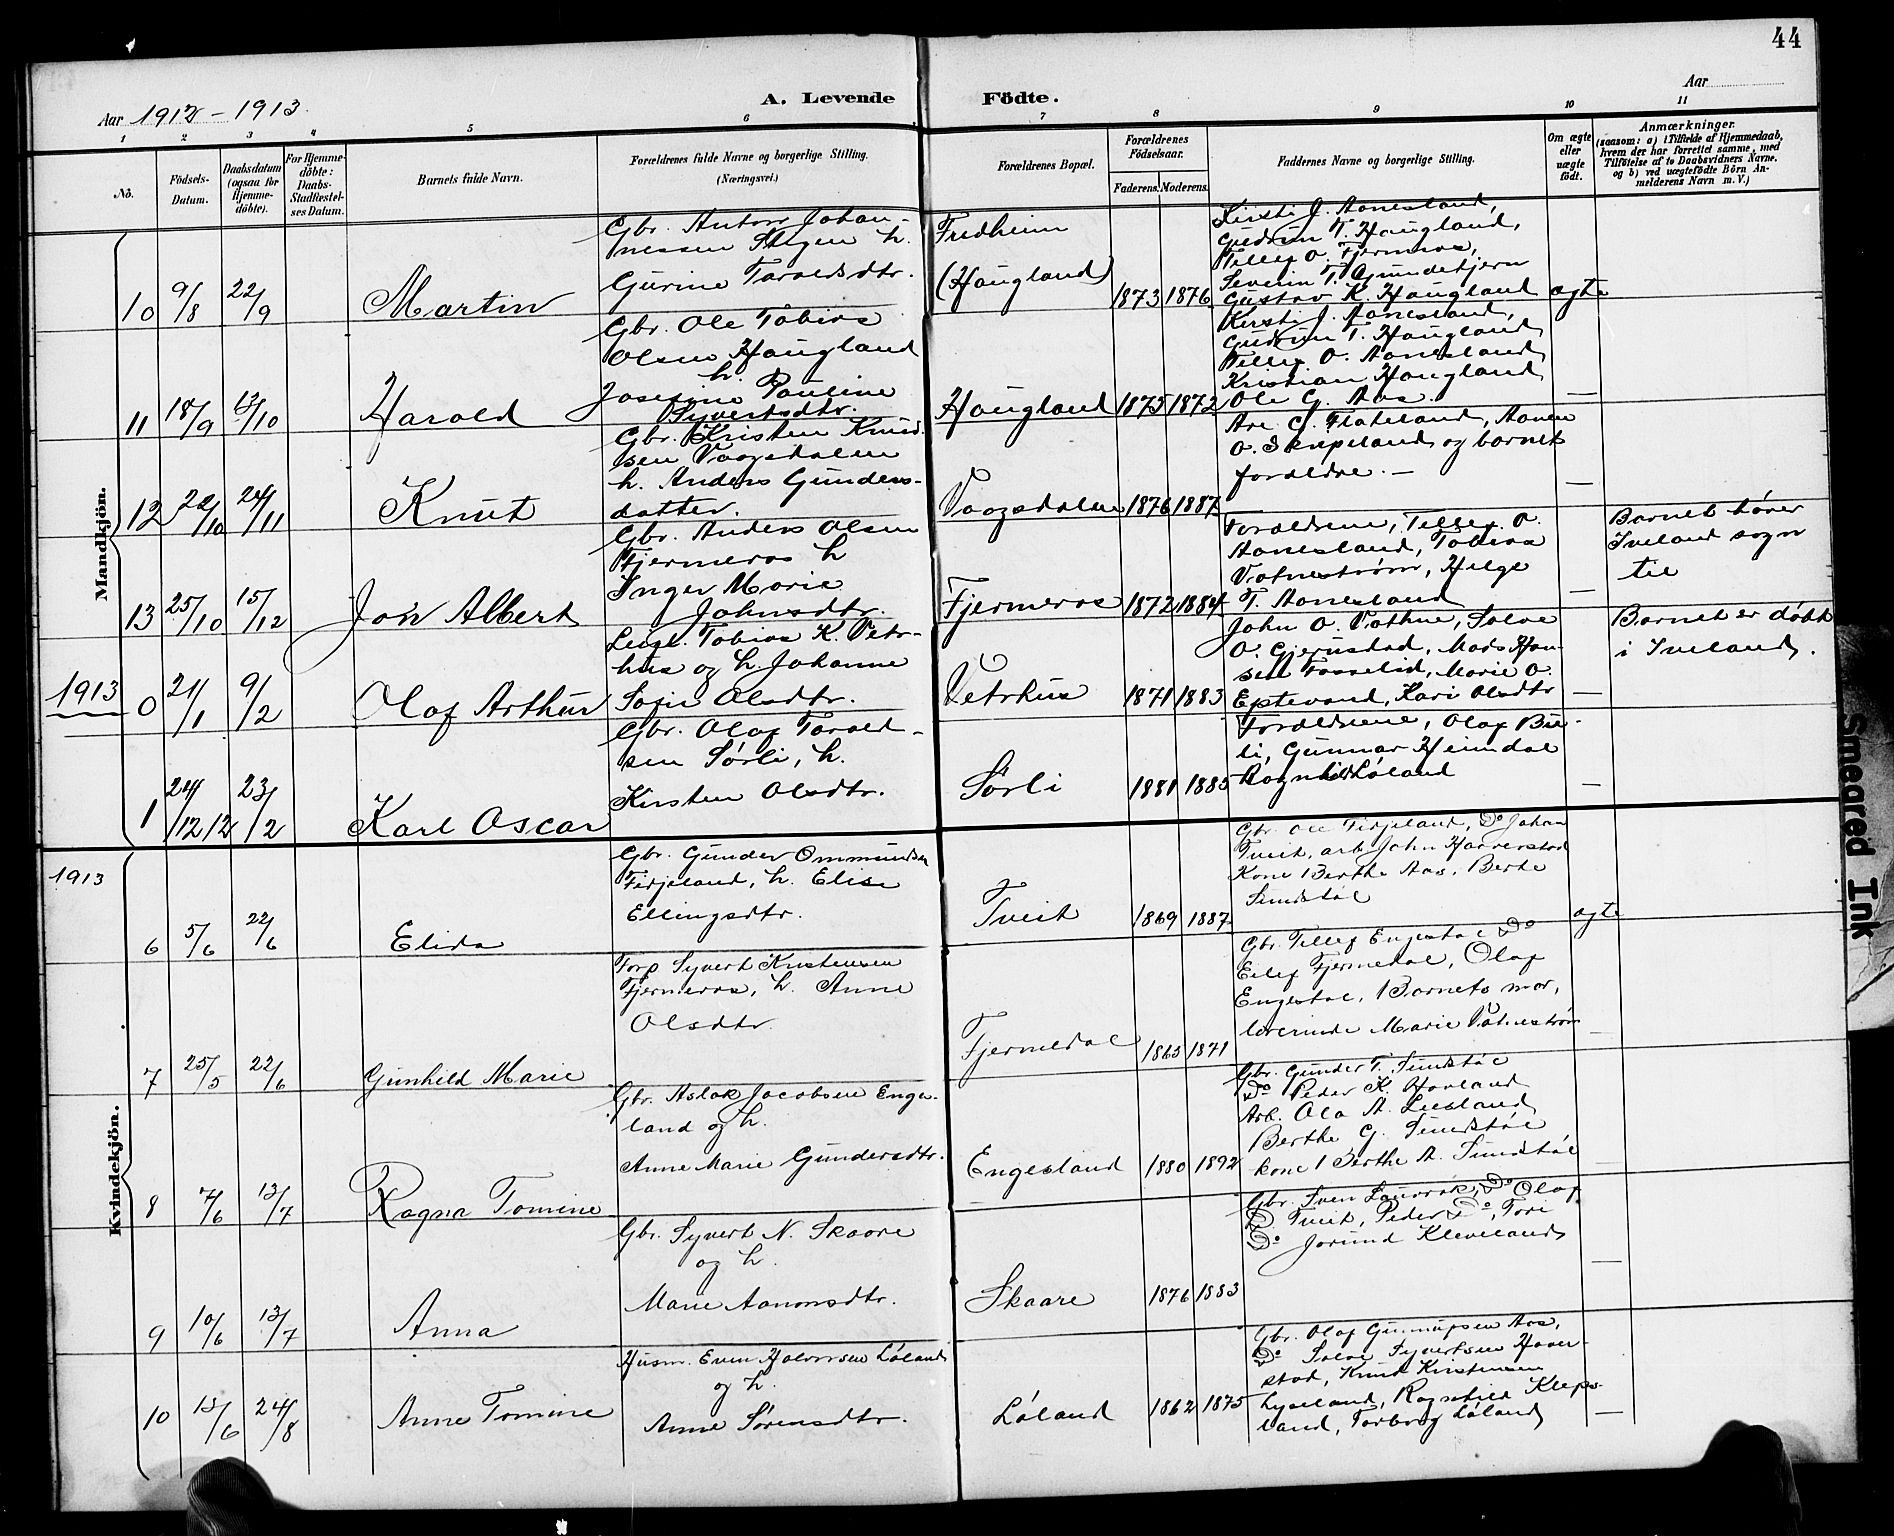 44
Aar 1912 - 1913.
A. Levende Födte.
Aar
1 2 3 4 5 6 7 8 9 10 11
No.
Födsels-Datum.
Daabsdatum (ogsaa for Hjemme-døbte).
For Hjemme-döbte: Daabs-Stadfæstel-ses Datum.
Barnets fulde Navn.
Forældrenes fulde Navne og borgerlige Stilling. (Næringsvei.)
Forældrenes Bopæl.
Forældrenes Födselsaar.
Faderens. Moderens.
Faddernes Navne og borgerlige Stilling.
Om ægte eller uægte födt.
Anmærkninger.
(saasom: a) i Tilfælde af Hjemmedaab, hvem der har forrettet samme, med Tilföielse af to Daabsvidners Navne. og b) ved uægtefödte Börn An-melderens Navn m. V.)
Mandkjön.
10 9/8 22/9 Martin
Gbr. Anton Johan-
nessen Stigen h.
Gurine Taraldsdtr.
Fredheim
(Haugland)
1873 1876
Kirsti J. Aanesland,
Gudrun T. Haugland,
Tellef O. Fjermeros,
Severin T. Grundetjern
Gustav K. Haugland
ægte
11 18/9 13/10 Harald
Gbr. Ole Tobias
Olsen Haugland
h.
Josefine Pauline
Syvertsdtr.
Haugland 1875 1872
Kirsti J. Aanesland,
Gudrun T. Haugland
Tellef O. Aanesland
Kristian Haugland
Ole G. Aas
—
12 22/10 24/11 Knut
Gbr. Kristen Knud-
sen Vaagsdalen
h. Anders Gunders-
datter.
Vaagsdalen 1876 1887
Are G. Flateland, Aanen
O. Skripeland og barnets
forældre. —
—
13 25/10 15/12 Jon Albert
Gbr. Anders Olsen
Fjermeros h
Inger Marie
Johnsdtr.
Fjermeros 1872 1884
Forældrene, Tellef O.
Aanesland, Tobias
Vatnestrøm, Helge
T. Aanesland
—
Barnet hører
Iveland sogn
til
1913
0 21/1 9/2 Olaf Arthur
Leigl. Tobias K. Vetr-
hus og h. Johanne
Sofie Olsdtr.
Vetrhus 1871 1883
John O. Vathne, Salve
O. Gjerustad, Mads Han-
sen Fosselid, Marie O.
Eptevand, Kari Olsdtr
—
Barnet er døbt
i Iveland.
1 24/12 12 23/2 Karl Oscar
Gbr. Olaf Tarald-
sen Sørli, h.
Kirsten Olsdtr.
Sørli 1881 1885
Forældrene, Olaf Bu-
li, Gunnar Heimdal
Ragnhild Løland
—
Kvindekjön.
1913
6 5/6 22/6 Elida
Gbr. Gunder Ommundsen
Firjeland, h. Elise
Ellingsdtr.
Tveit 1869 1887
Gbr. Ole Firjeland, Do Johan
Tveit, arb John Haverstad
Kone Berthe Aas, Berte
Sundstøl
ægte
7 25/5 22/6 Gunhild Marie
Forp Syvert Kristensen
Fjermeros, h. Anne
Olsdtr.
Fjermedal 1865 1871
Gbr. Tellef Engestøl Do
Eilef Fjermedal, Olaf
Engestøl, Barnets mor,
lærerinde Marie Vatnestrøm
—
8 7/6 13/7 Ragna Tomine
Gbr. Aslak Jacobsen Enges-
land og h.
Anne Marie Gundersdtr.
Engesland 1880 1892
Gbr. Gunder T. Sundstøl
Do Peder K. Hovland
Arb. Ola A. Liesland
Berthe G. Sundstøl
kone Berthe A. Sundstøl
9 10/6 13/7 Anna
Gbr. Syvert N. Skaare
og h.
Marie Aanonsdtr.
Skaare 1876 1883
Gbr. Sven Lauvrak, Do Olaf
Do Tveit, Peder Do, Tori
Do Jorund Kleveland
—
10 15/6 24/8 Anne Tomine
Husm. Even Halvorsen Løland
og h.
Anne Sørensdtr.
Løland 1862 1875
Gbr. Olaf Gunnufsen Aas,
Do Salve Syvertsen Haver-
stad, Knud Kristensen
Lyseland, Ragnhild Kleps-
land, Torborg Løland
—
Smeared Ink